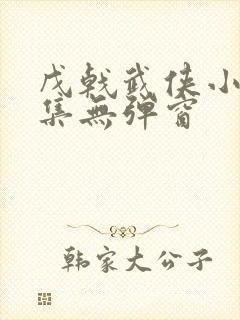 戊戟武侠小
集無弹窗
韩家大公子